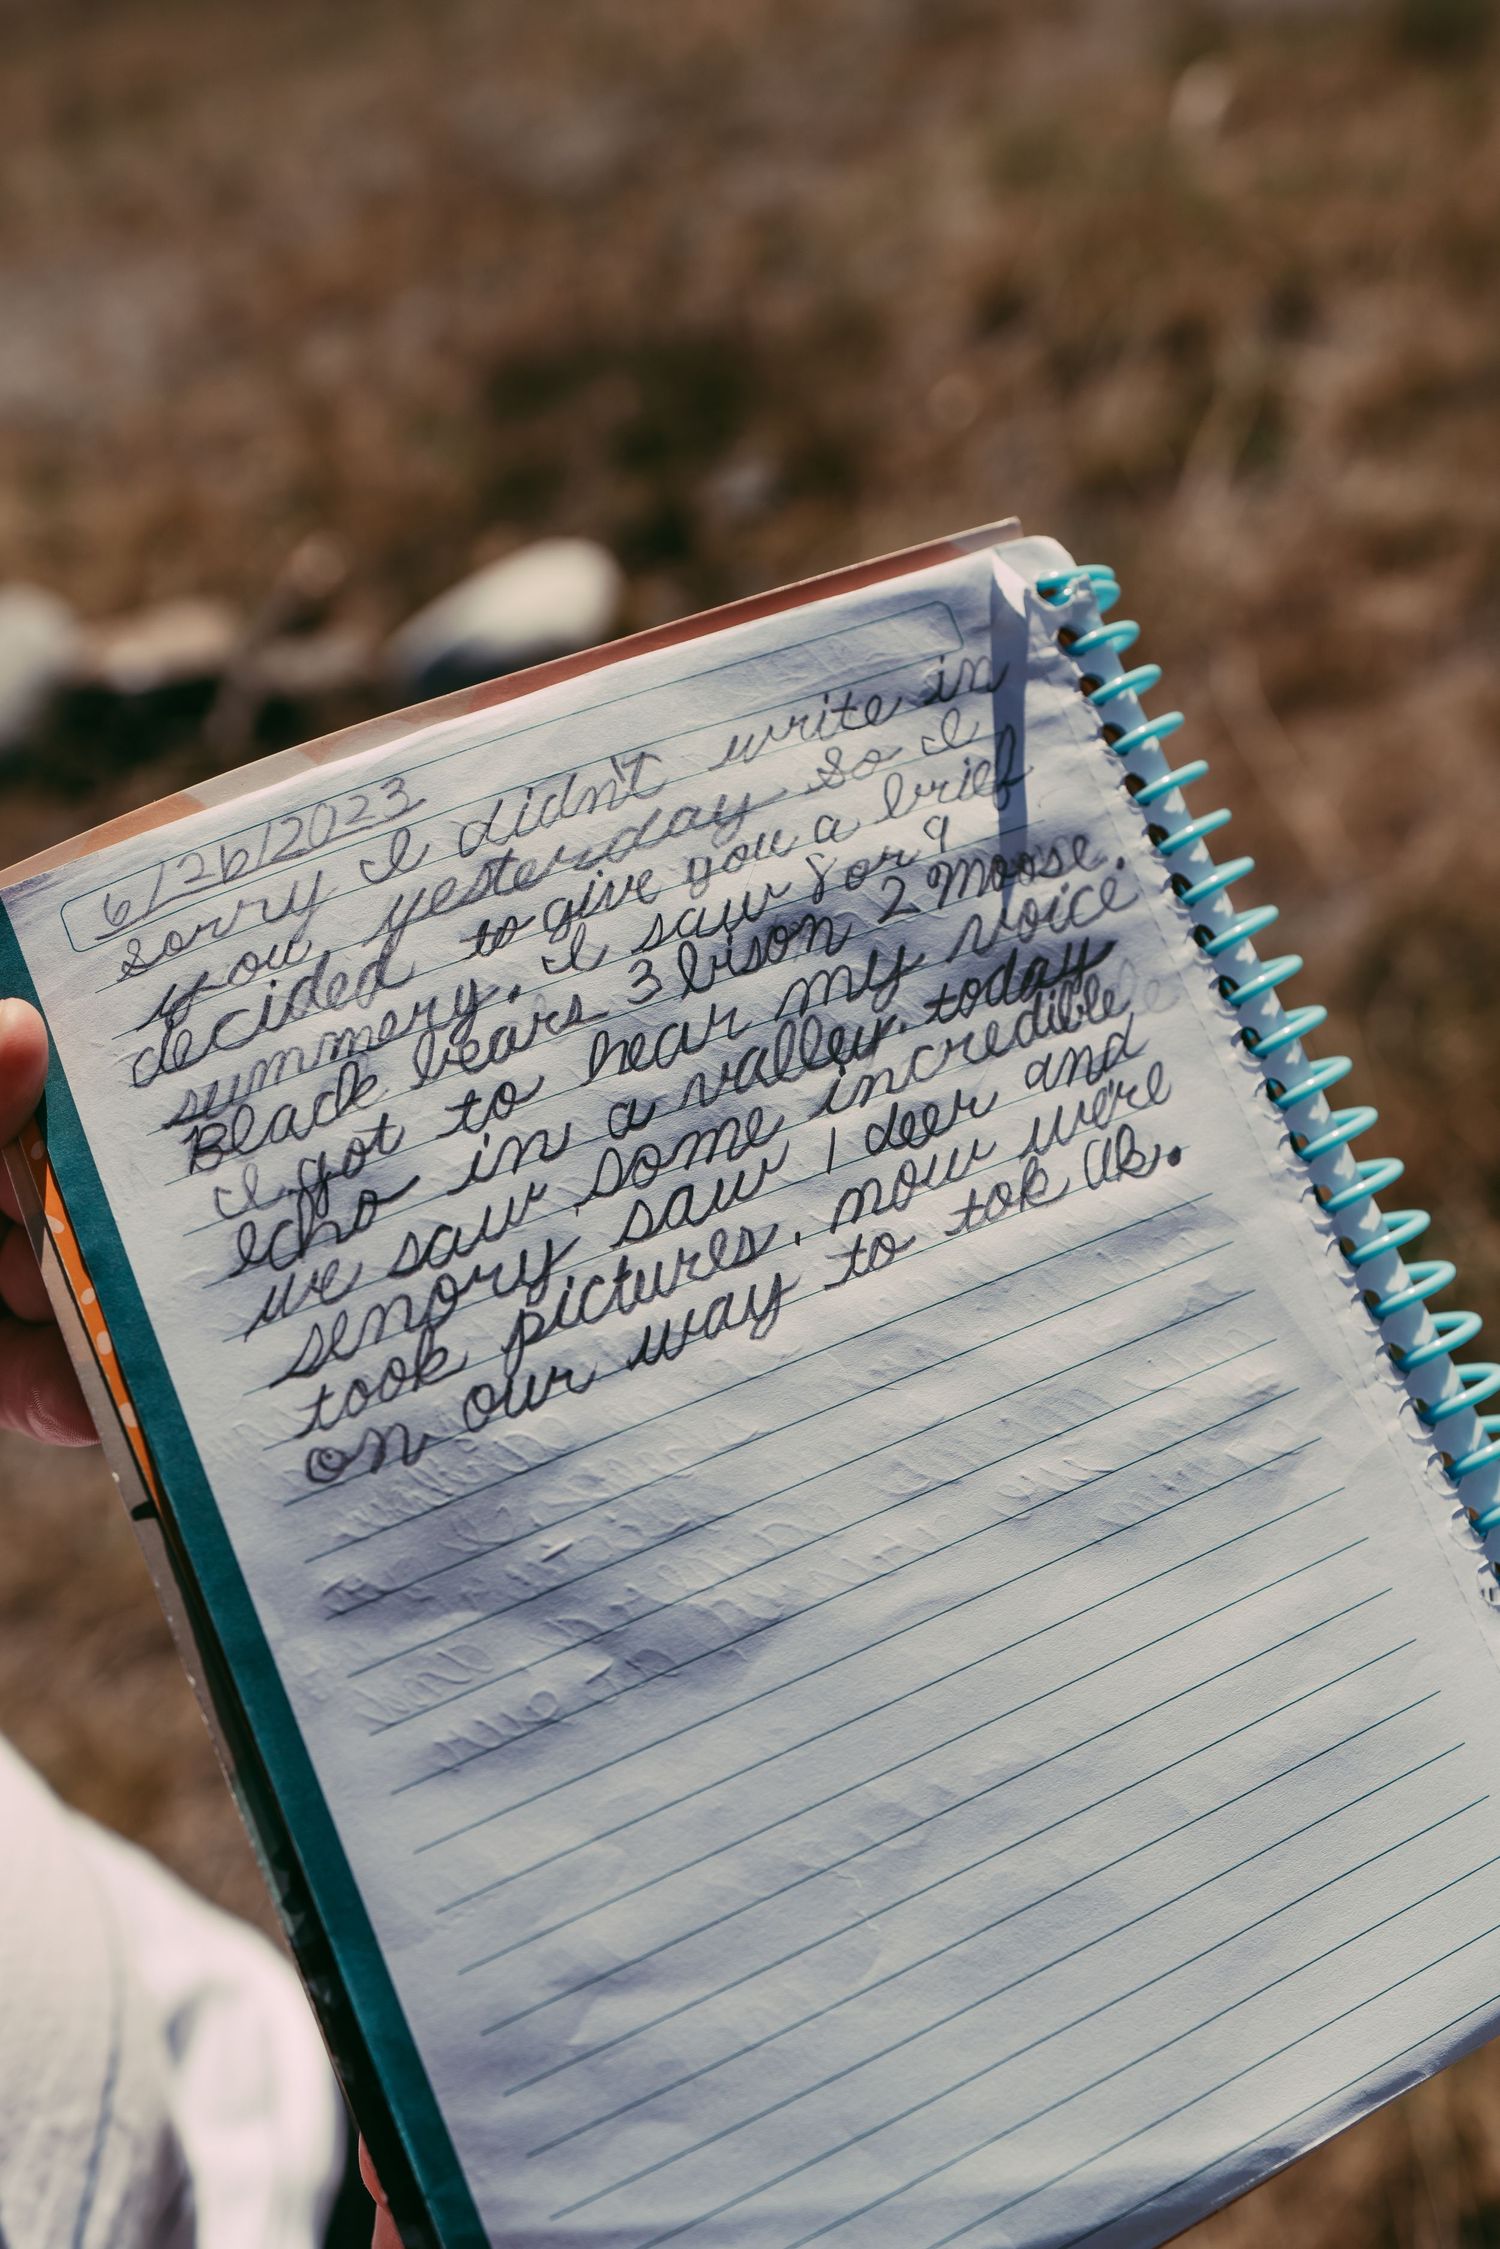 6/26/2023
sorry I didn't write in
you yesterday so I
decided to give you a brief
summery. I saw 8 or 9
Black bears 3 bison 2 moose.
I got to hear my voice
echo in a valley. today
we saw some incredible
senory saw 1 deer and
took pictures. now we're
on our way to tok ak.